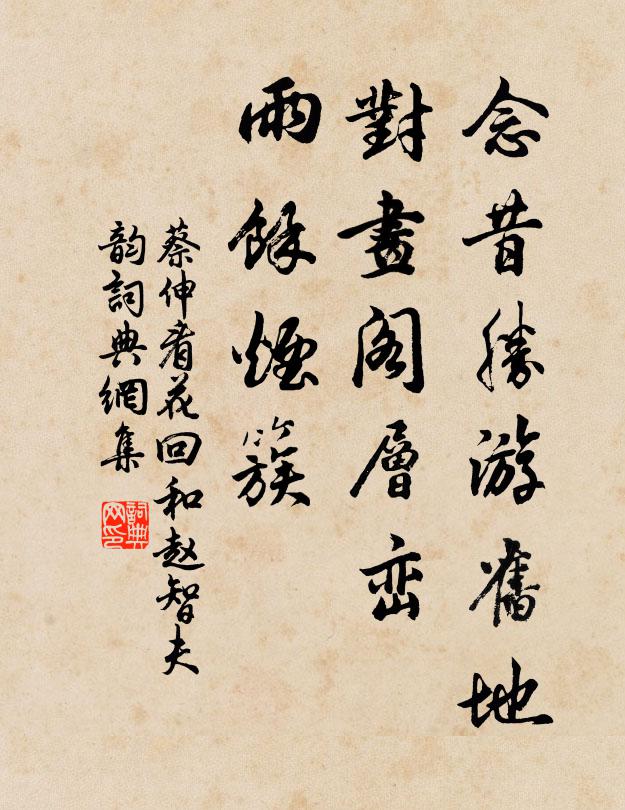 念昔勝游舊地
對畫閣層峦
雨餘煙簇
蔡伸看花回和赵智夫
韵詞典網集
詞典网印